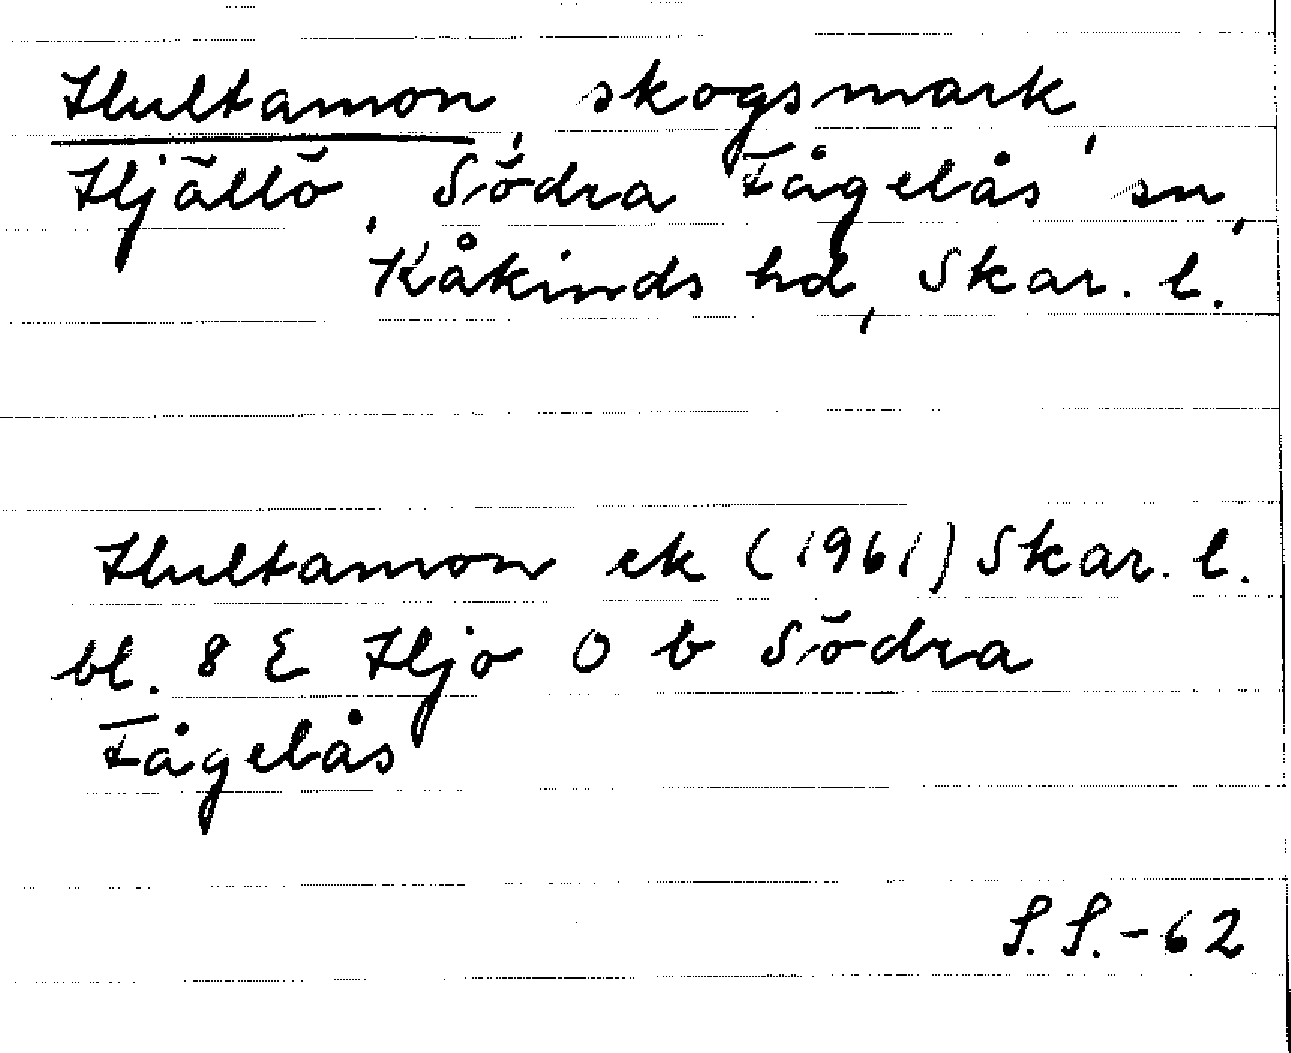 Hultamon, skogsmark,
Hjällö, Södra Fågelås sn,
Kåkinds hd, Skar. l.
Hultamon ek (1961) Skar. l.
bl. 8 E Hjo 0 b Södra
Fågelås
S.S.-62